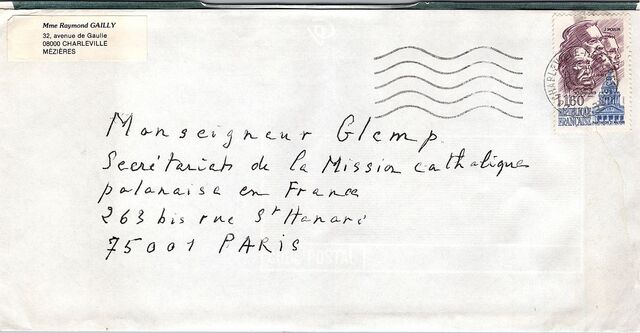 Mme Raymond GAILLY
32, avenue de Gaulle
08000 CHARLEVILLE
MÉZIÈRES
J. MOULIN
1,60
RÉPUBLIQUE
FRANÇAISE
Monseigneur Glemp
Secrétariat de la Mission catholique
polonaise en France
263 bis rue St Honoré
75001 PARIS